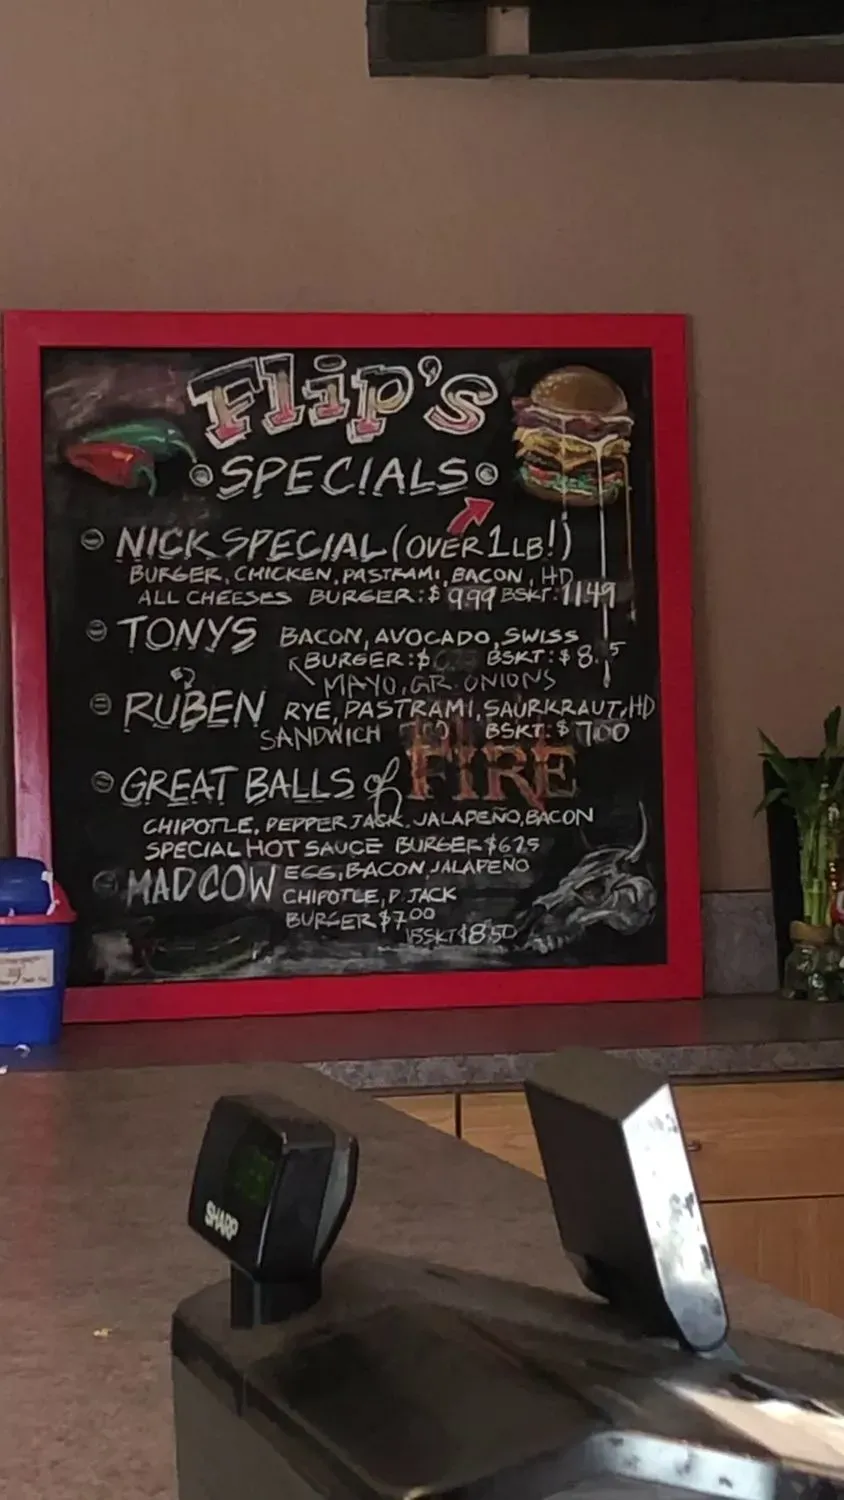 Flip's
SPECIALS
NICK SPECIAL (OVER 1LB!)
BURGER, CHICKEN, PASTRAMI, BACON, HD
ALL CHEESES BURGER: $9.99 BSKT: 11.49
TONYS BACON, AVOCADO, SWISS
BURGER: $ BSKT: $8.
MAYO, GR. ONIONS
RUBEN RYE, PASTRAMI, SAURKRAUT, HD
SANDWICH BSKT: $7.00
GREAT BALLS of FIRE
CHIPOTLE, PEPPER JACK, JALAPEÑO, BACON
SPECIAL HOT SAUCE BURGER $6.25
MAD COW EGG, BACON, JALAPENO
CHIPOTLE, P. JACK
BURGER $7.00
BSKT $8.50
SHARP